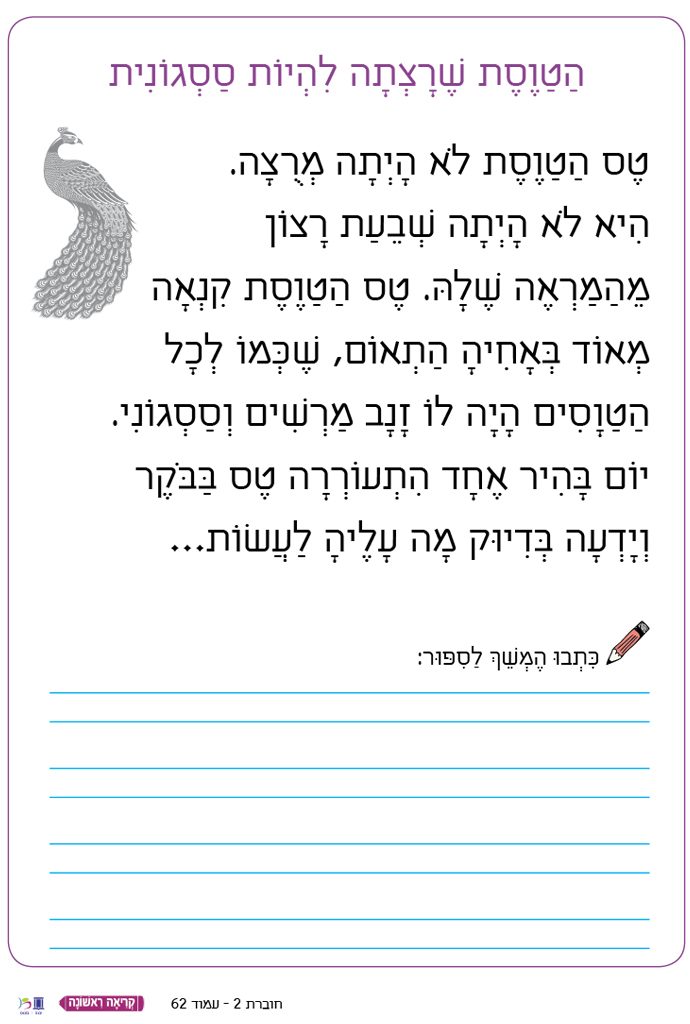 הַטַּוֶּסֶת שֶׁרָצְתָה לִהְיוֹת סַסְגּוֹנִית
טֶס הַטַּוֶּסֶת לֹא הָיְתָה מְרֻצָּה.
הִיא לֹא הָיְתָה שְׂבֵעַת רָצוֹן
מֵהַמַּרְאֶה שֶׁלָּהּ. טֶס הַטַּוֶּסֶת קִנְאָה
מְאוֹד בְּאָחִיהָ הַתְּאוֹם, שֶׁכְּמוֹ לְכָל
הַטַּוָּסִים הָיָה לוֹ זָנָב מַרְשִׁים וְסַסְגּוֹנִי.
יוֹם בָּהִיר אֶחָד הִתְעוֹרְרָה טֶס בַּבֹּקֶר
וְיָדְעָה בְּדִיּוּק מָה עָלֶיהָ לַעֲשׂוֹת...
כִּתְבוּ הֶמְשֵׁךְ לַסִּפּוּר:
חוברת 2 - עמוד 62
קְרִיאָה רִאשׁוֹנָה